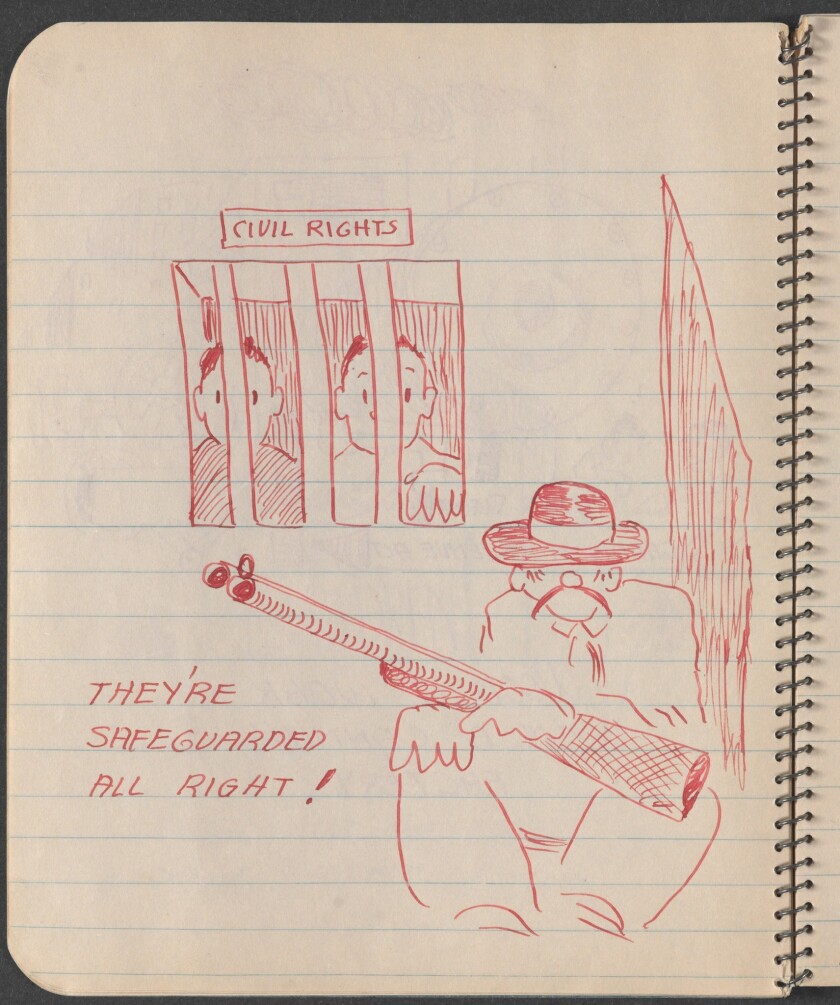 CIVIL RIGHTS
THEY'RE
SAFEGUARDED
ALL RIGHT!